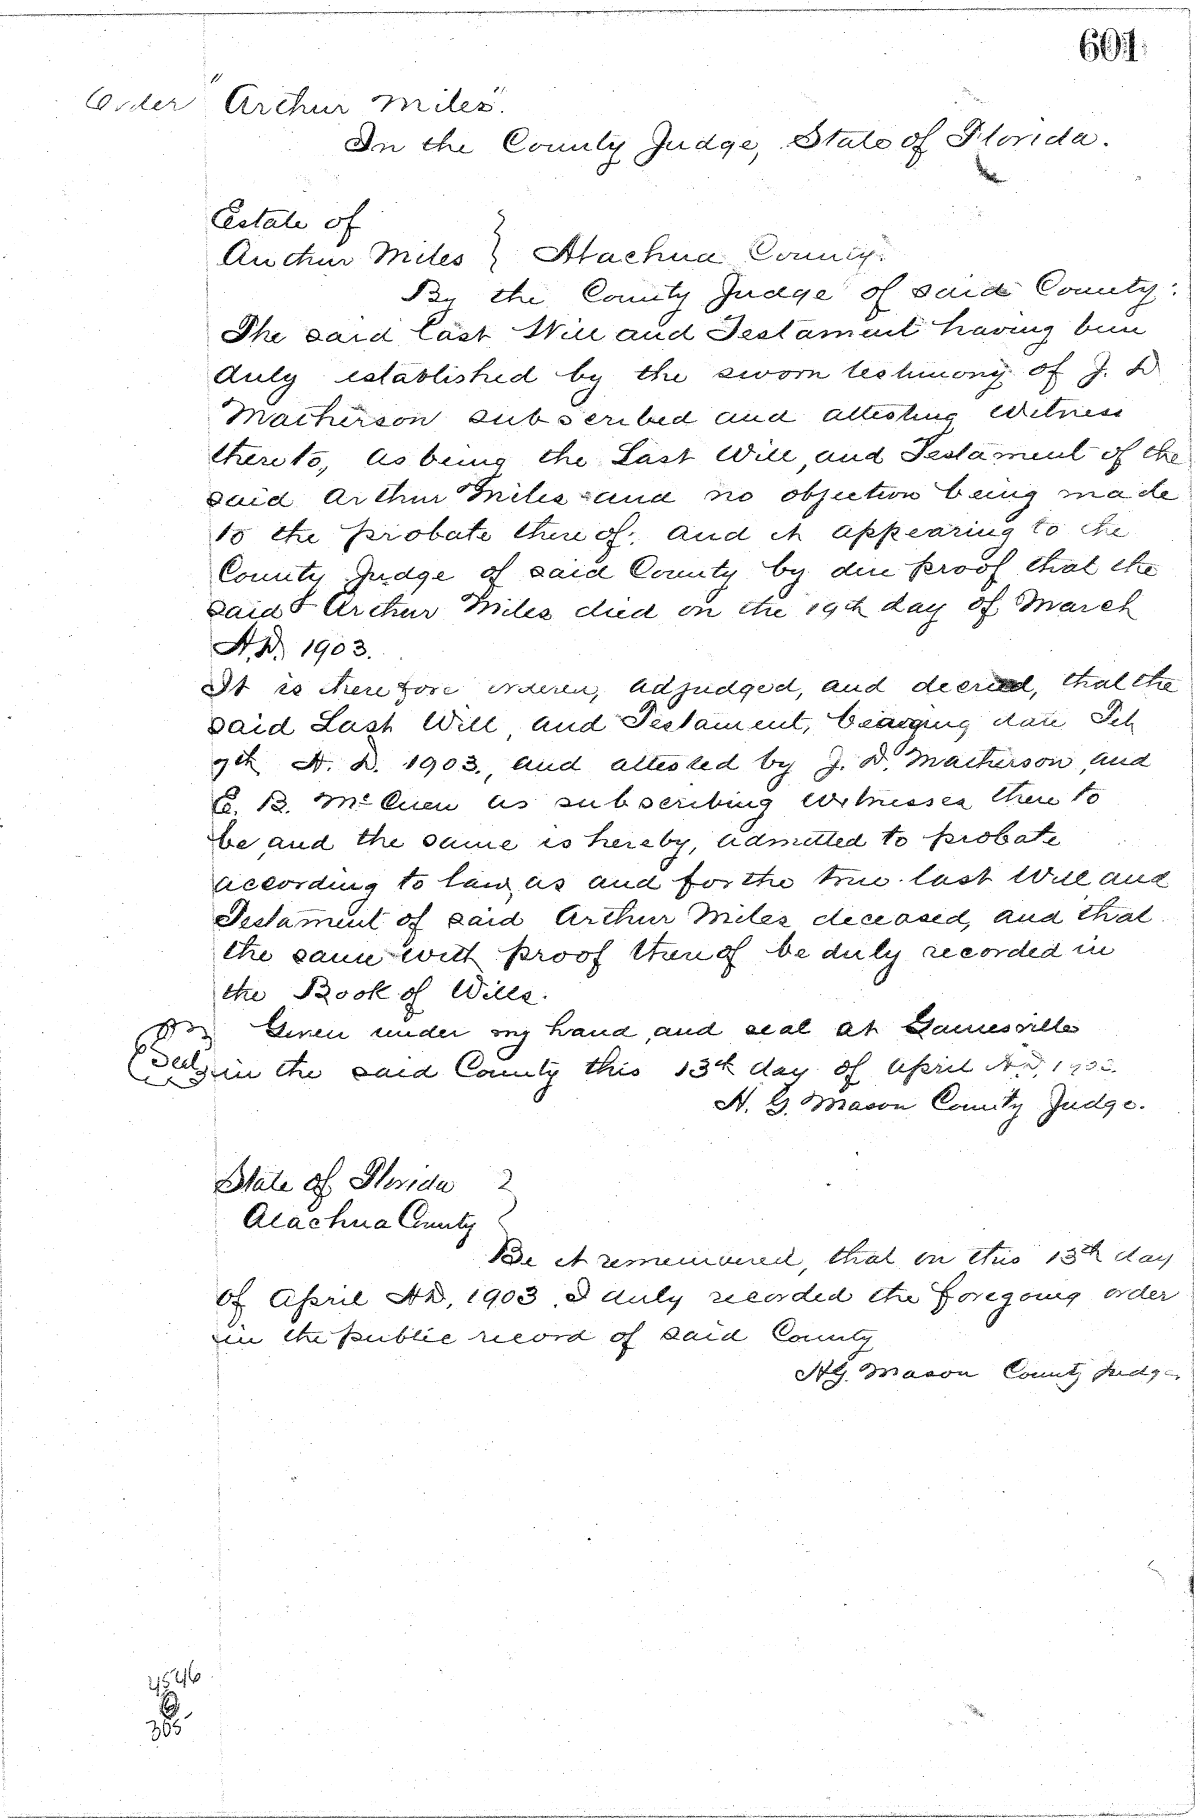 601
Order "Arthur Miles".
In the County Judge, State of Florida.
Estate of
Arthur Miles } Alachua County.
By the County Judge of said County:
The said last Will and Testament having been
duly established by the sworn testimony of J. D
Matherson subscribed and attesting witness
thereto, as being the Last Will, and Testament of the
said Arthur Miles and no objection being made
to the probate thereof. and it appearing to the
County Judge of said County by due proof that the
said Arthur Miles died on the 19th day of March
A.D. 1903.
It is therefore ordered, adjudged, and decreed, that the
said Last Will, and Testament, bearing date Feb
9th A. D. 1903., and attested by J. D. Matherson, and
E. B. McCuen as subscribing witnesses there to
be, and the same is hereby, admitted to probate
according to law, as and for the true last Will and
Testament of said Arthur Miles, deceased, and that
the same with proof thereof be duly recorded in
the Book of Wills.
Given under my hand, and seal at Gainesville
Seal in the said County this 13th day of April A.D. 1903.
H. G. Mason County Judge.
State of Florida }
Alachua County
Be it remembered, that on this 13th day
of April A.D. 1903. I duly recorded the foregoing order
in the public record of said County
H.G. Mason County Judge
4546
305